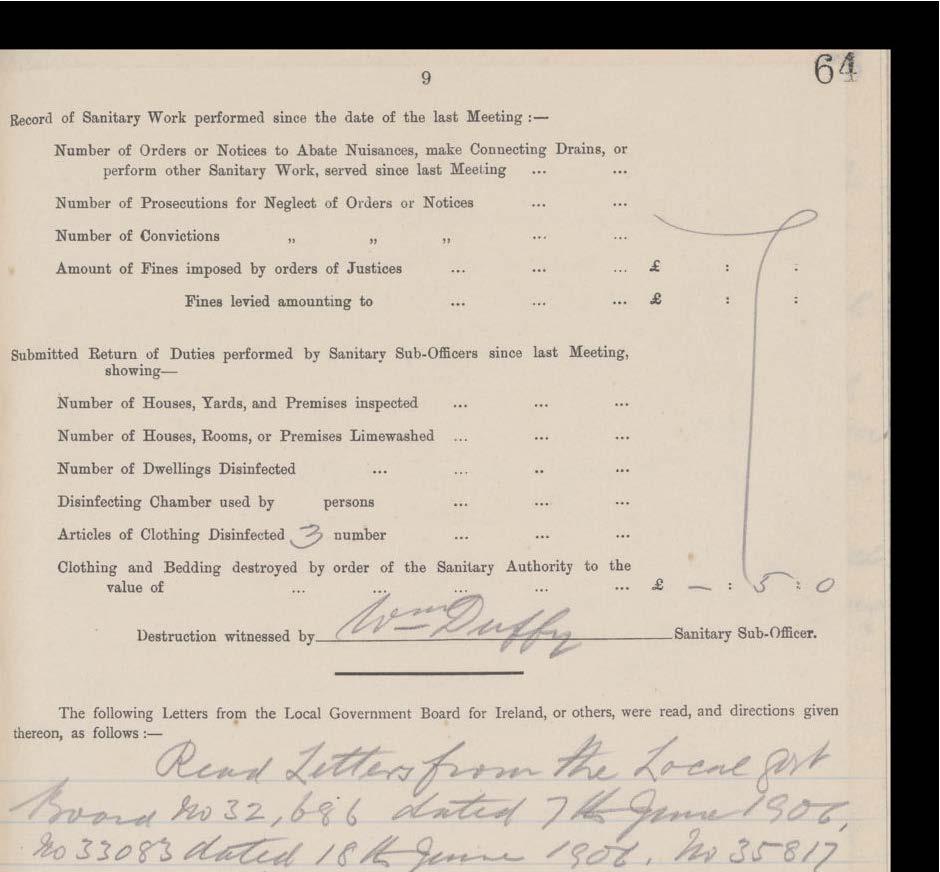 9
64
Record of Sanitary Work performed since the date of the last Meeting :—
Number of Orders or Notices to Abate Nuisances, make Connecting Drains, or
perform other Sanitary Work, served since last Meeting ... ...
Number of Prosecutions for Neglect of Orders or Notices ... ...
Number of Convictions „ „ „ ... ...
Amount of Fines imposed by orders of Justices ... ... ... £ : :
Fines levied amounting to ... ... ... £ : :
Submitted Return of Duties performed by Sanitary Sub-Officers since last Meeting,
showing—
Number of Houses, Yards, and Premises inspected ... ... ...
Number of Houses, Rooms, or Premises Limewashed ... ... ...
Number of Dwellings Disinfected ... ... .. ...
Disinfecting Chamber used by persons ... ... ...
Articles of Clothing Disinfected 3 number ... ... ...
Clothing and Bedding destroyed by order of the Sanitary Authority to the
value of ... ... ... ... ... £ — : 5 : 0
Destruction witnessed by Wm Duffy Sanitary Sub-Officer.
The following Letters from the Local Government Board for Ireland, or others, were read, and directions given
thereon, as follows :—
Read Letters from the Local Govt
Board No 32,686 dated 7th June 1906,
No 33083 dated 18th June 1906. No 35817